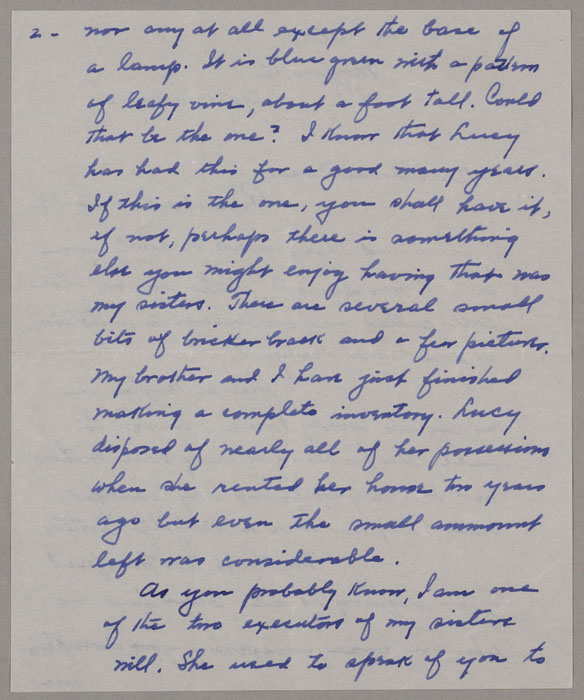 2 - nor any at all except the base of
a lamp. It is blue green with a pattern
of leafy vine, about a foot tall. Could
that be the one? I know that Lucy
has had this for a good many years.
If this is the one, you shall have it,
if not, perhaps there is something
else you might enjoy having that was
my sisters. There are several small
bits of bricker brack and a few pictures.
My brother and I have just finished
making a complete inventory. Lucy
disposed of nearly all of her possessions
when she rented her house two years
ago but even the small ammount
left was considerable.
As you probably know, I am one
of the two executors of my sisters
will. She used to speak of you to